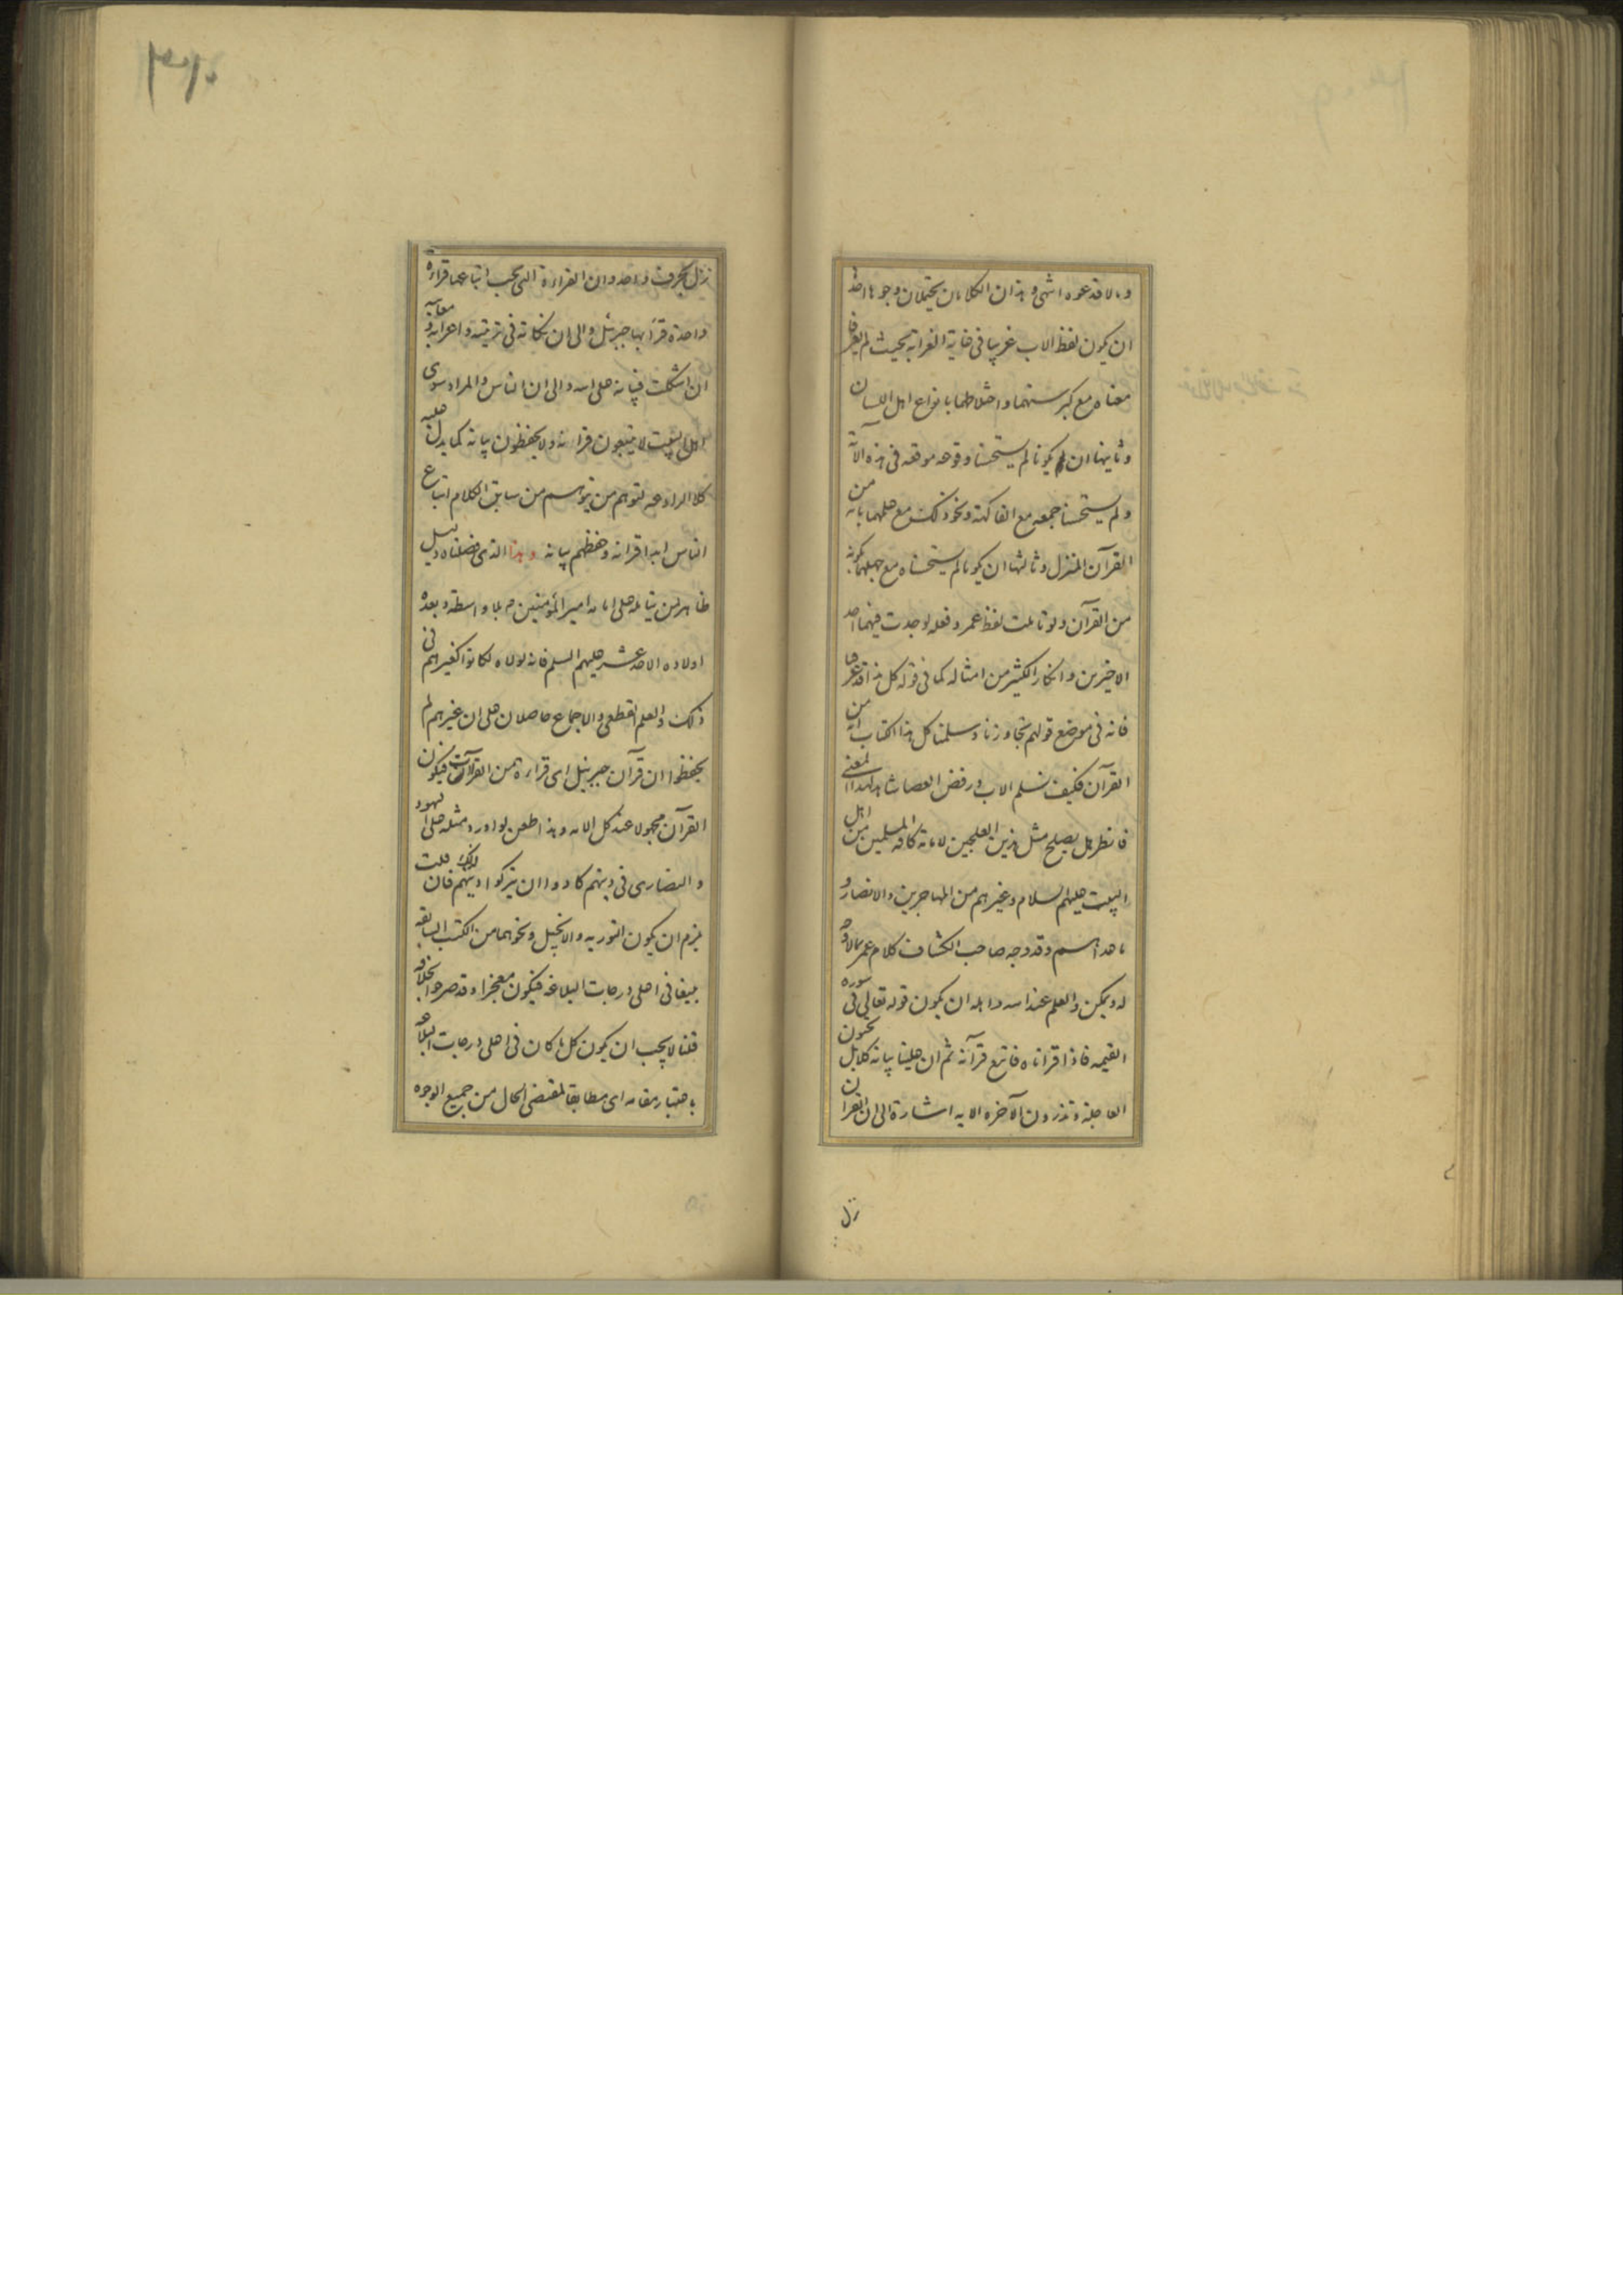 وما لا فدعوه انتهى وهذان الكلامان يحتملان وجوها احدها
ان يكون لفظ الاب غريبا في غاية الغرابة بحيث لم يعرفا
معناه مع كبر سنهما واختلاطهما بانواع اهل اللسان
وثانيها ان يكونا لم يستحسنا وقوعه موقعه في هذه الآية
ولم يستحسنا جمعه مع الفاكهة ونحو ذلك مع علمهما بانه من
القرآن المنزل وثالثها ان يكونا لم يستحسناه مع جهلهما بكونه
من القرآن ولو تاملت لفظ عمر وفعله لوجدت فيهما احد
الاخيرين وانكار الكثير من امثاله كما في قوله كل هذا قد عرفنا
فانه في موضع قولهم تجاوزنا وسلمنا كل هذا الكتاب انه من
القرآن فكيف نسلم الاب ورفض العصا شاهد لهذا المعنى
فانظر هل يصلح مثل هذين العلجين لامامة كافة المسلمين من اهل
البيت عليهم السلام وغيرهم من المهاجرين والانصار و
ما هداهم وقد وجه صاحب الكشاف كلام عمر بما لا وجه
له ويمكن والعلم عند الله واهله ان يكون قوله تعالى في سورة
القيمه فاذا قراناه فاتبع قرآنه ثم ان علينا بيانه كلا بل تحبون
العاجلة وتذرون الآخره الايه اشارة الى ان القران
نزل
نزل بحرف واحد وان القراءة التي يجب اتباعها قراءة
واحدة قرأ بها جبرئيل والى ان نكاته في ترتيبه واعرابه و معانيه
ان اشكلت فبيانه على الله والى ان الناس والمراد سوى
اهل البيت لا يتبعون قرانه ولا يحفظون بيانه كما يدل عليه
كلا الرادعه لتوهم من يتوهم من سابق الكلام اتباع
الناس ابدا قرانه وحفظهم بيانه وهذا الذي فصلناه دليل
ظاهر لمن يتامله على امامة امير المؤمنين م بلا واسطة وبعده
اولاده الاحد عشر عليهم السلم فانه لولاه لكانوا كغيرهم في
ذلك والعلم القطعي والاجماع حاصلان على ان غيرهم لم
يحفظوا ان قرآن جبرئيل اى قراءة من القراآت فيكون
القرآن مجهولا عند كل الامه وهذا طعن لو اورد مثله على اليهود
والنصارى في دينهم كادوا ان يتركوا دينهم لذلك فان قلت
يلزم ان يكون التوريه والانجيل ونحوهما من الكتب السابقه
بليغا في اعلى درجات البلاغه فيكون معجزا وقد صرحوا بخلافه
قلنا لا يجب ان يكون كل ما كان في اعلى درجات البلاغه
باعتبار مقامه اى مطابقا لمقتضى الحال من جميع الوجوه